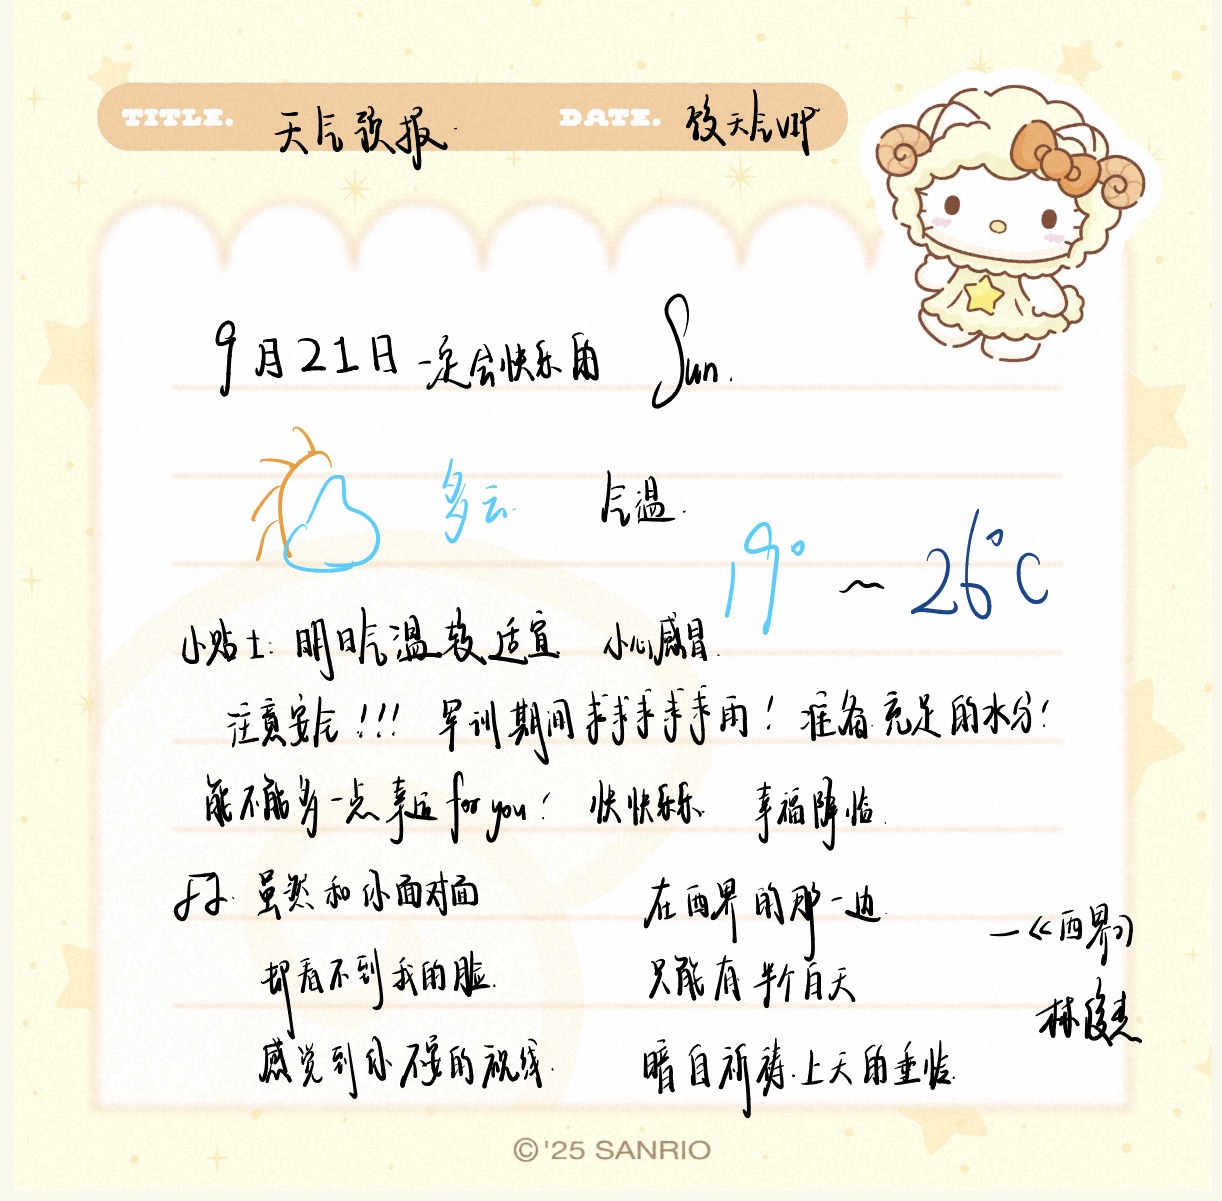 TITLE. 天气预报. DATE. 饺天气VIP
9月21日 一定会快乐的 Sun.
多云. 气温.
19° ~ 26°C
小贴士: 明日气温较适宜 小心感冒.
注意安全!!! 军训期间 求求求求求雨! 准备充足的水分!
能不能多一点幸运 for you! 快快乐乐 幸福降临.
虽然和你面对面 在西界的那一边.
—《西界》
却看不到我的脸. 只能有半个白天
林俊杰
感觉到你不安的视线. 暗自祈祷.上天的垂怜.
© '25 SANRIO